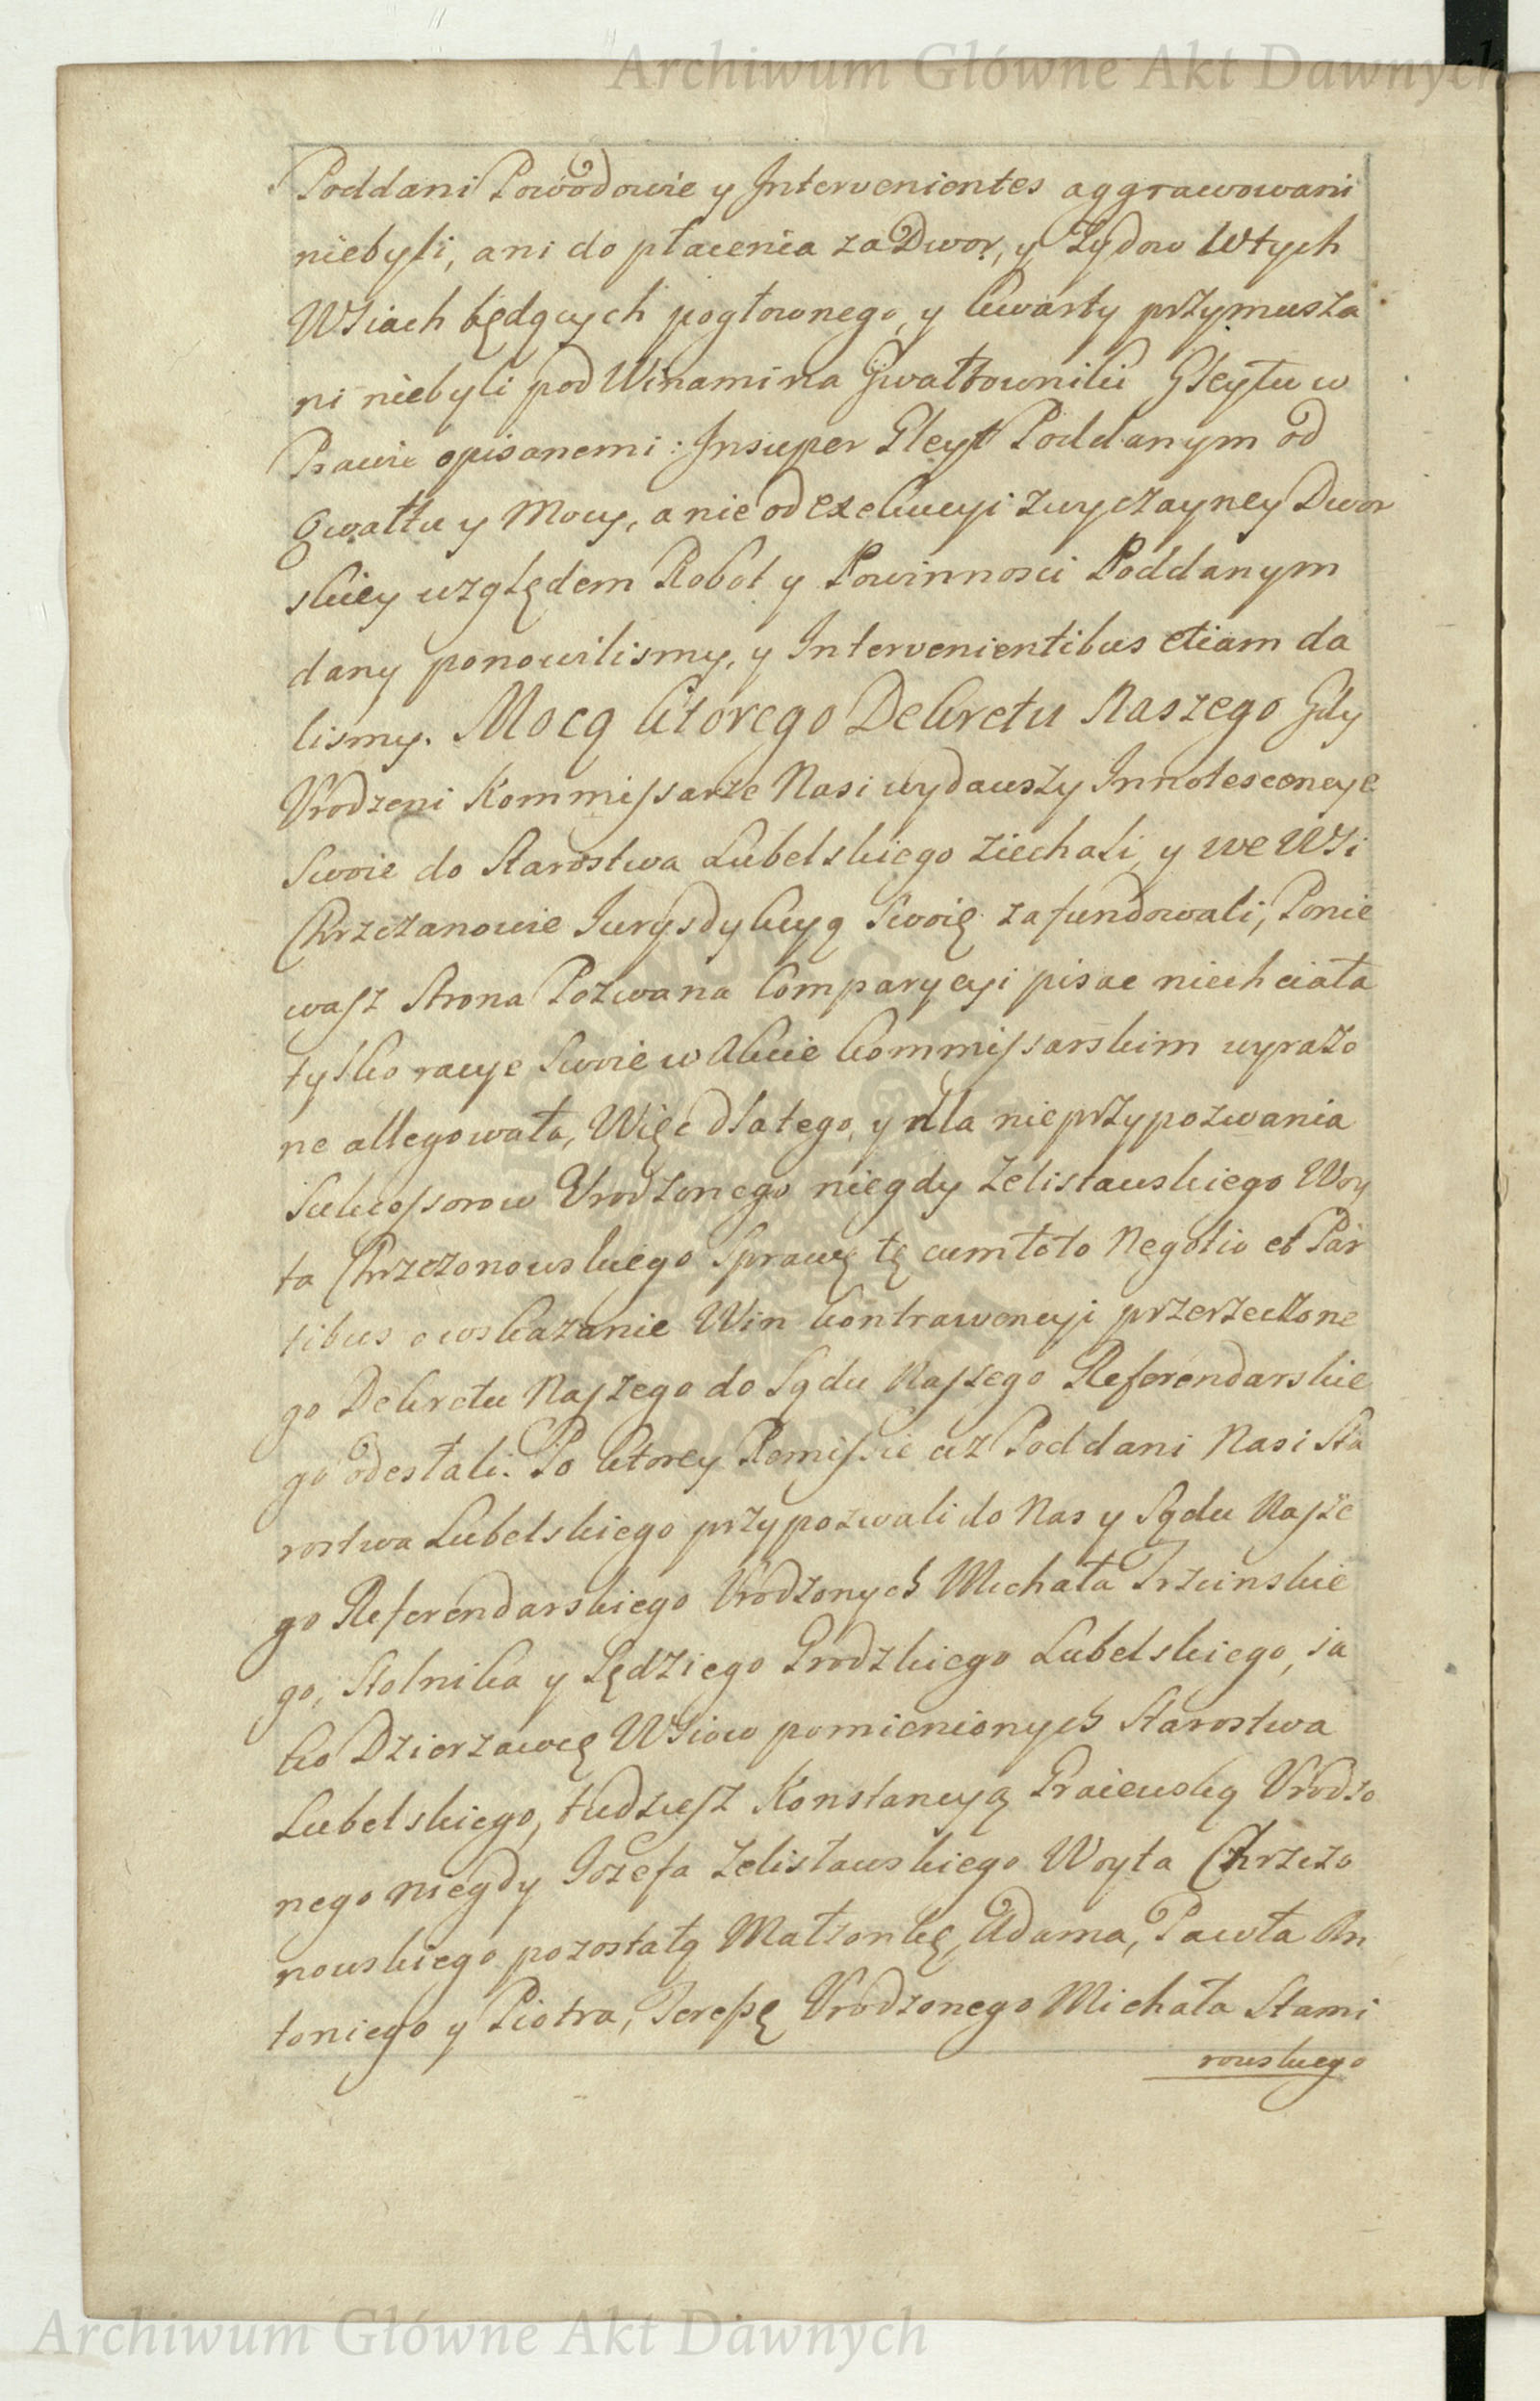 Archiwum Główne Akt Dawnych
Poddani Powodowie y Intervenientes aggrawowani
niebyli, ani do płacenia za Dwor, y Zydow Wtych
Wsiach będących pogłownego, y kwarty przymusza
ni niebyli pod Winami na Gwałtowniki Gleytu w
Prawie opisanemi: Insuper Gleyt Poddanym od
Gwałtu y Mocy, a nie od exekucyi zwyczayney Dwor
skiey względem Robot y Powinnosci Poddanym
dany ponowilismy, y Intervenientibus etiam da
lismy. Mocą ktorego Dekretu Naszego Gdy
Vrodzeni Kommissarze Nasi wydawszy Innotescencye
Swoie do Starostwa Lubelskiego ziechali y we Wsi
Chrzczanowie Jurysdykcyą Swoię zafundowali, Ponie
wasz Strona Pozwana Comparycyi pisac niechciała
tylko racye Swoie w Akcie kommissarskim wyrażo
ne allegowała, Więc dlatego, y dla nieprzypozwania
Sukcessorow Vrodzonego niegdy Zelisławskiego Woy
ta Chrzczonowskiego Sprawę tę cum toto Negotio et Par
tibus o wskazanie Win kontrawencyi przerzeczone
go Dekretu Naszego do Sądu Naszego Referendarskie
go odesłali. Po ktorey Remissie ciż Poddani Nasi Sta
rostwa Lubelskiego przypozwali do Nas y Sądu Nasze
go Referendarskiego Vrodzonych Michała Trzcinskie
go, Stolnika y Sędziego Grodzkiego Lubelskiego, ia
ko Dzierzawcę Wsiow pomienionych Starostwa
Lubelskiego, tudziesz Konstancyą Graiewską Vrodzo
nego niegdy Jozefa Zelisławskiego Woyta Chrzczo
nowskiego pozostałą Małzonkę, Adama, Pawła An
toniego y Piotra, Teressę Vrodzonego Michała Stami
rowskiego
Archiwum Główne Akt Dawnych